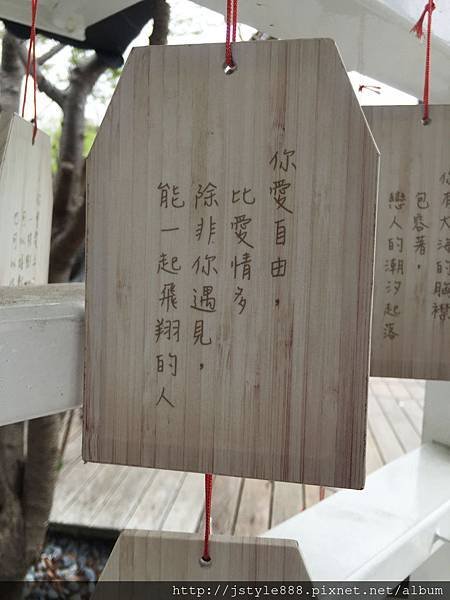 你愛自由，
比愛情多
除非你遇見，
能一起飛翔的人
你有大海的胸襟
包容著，
戀人的潮汐起落
http://jstyle888.pixnet.net/album